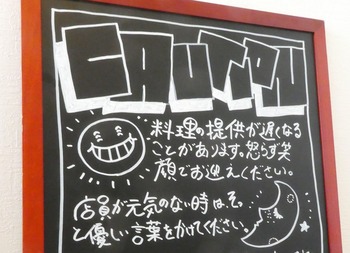 CAUTION
料理の提供が遅くなる
ことがあります。怒らず笑
顔でお迎えください。
店員が元気のない時は、そっ
と優しい言葉をかけてください。